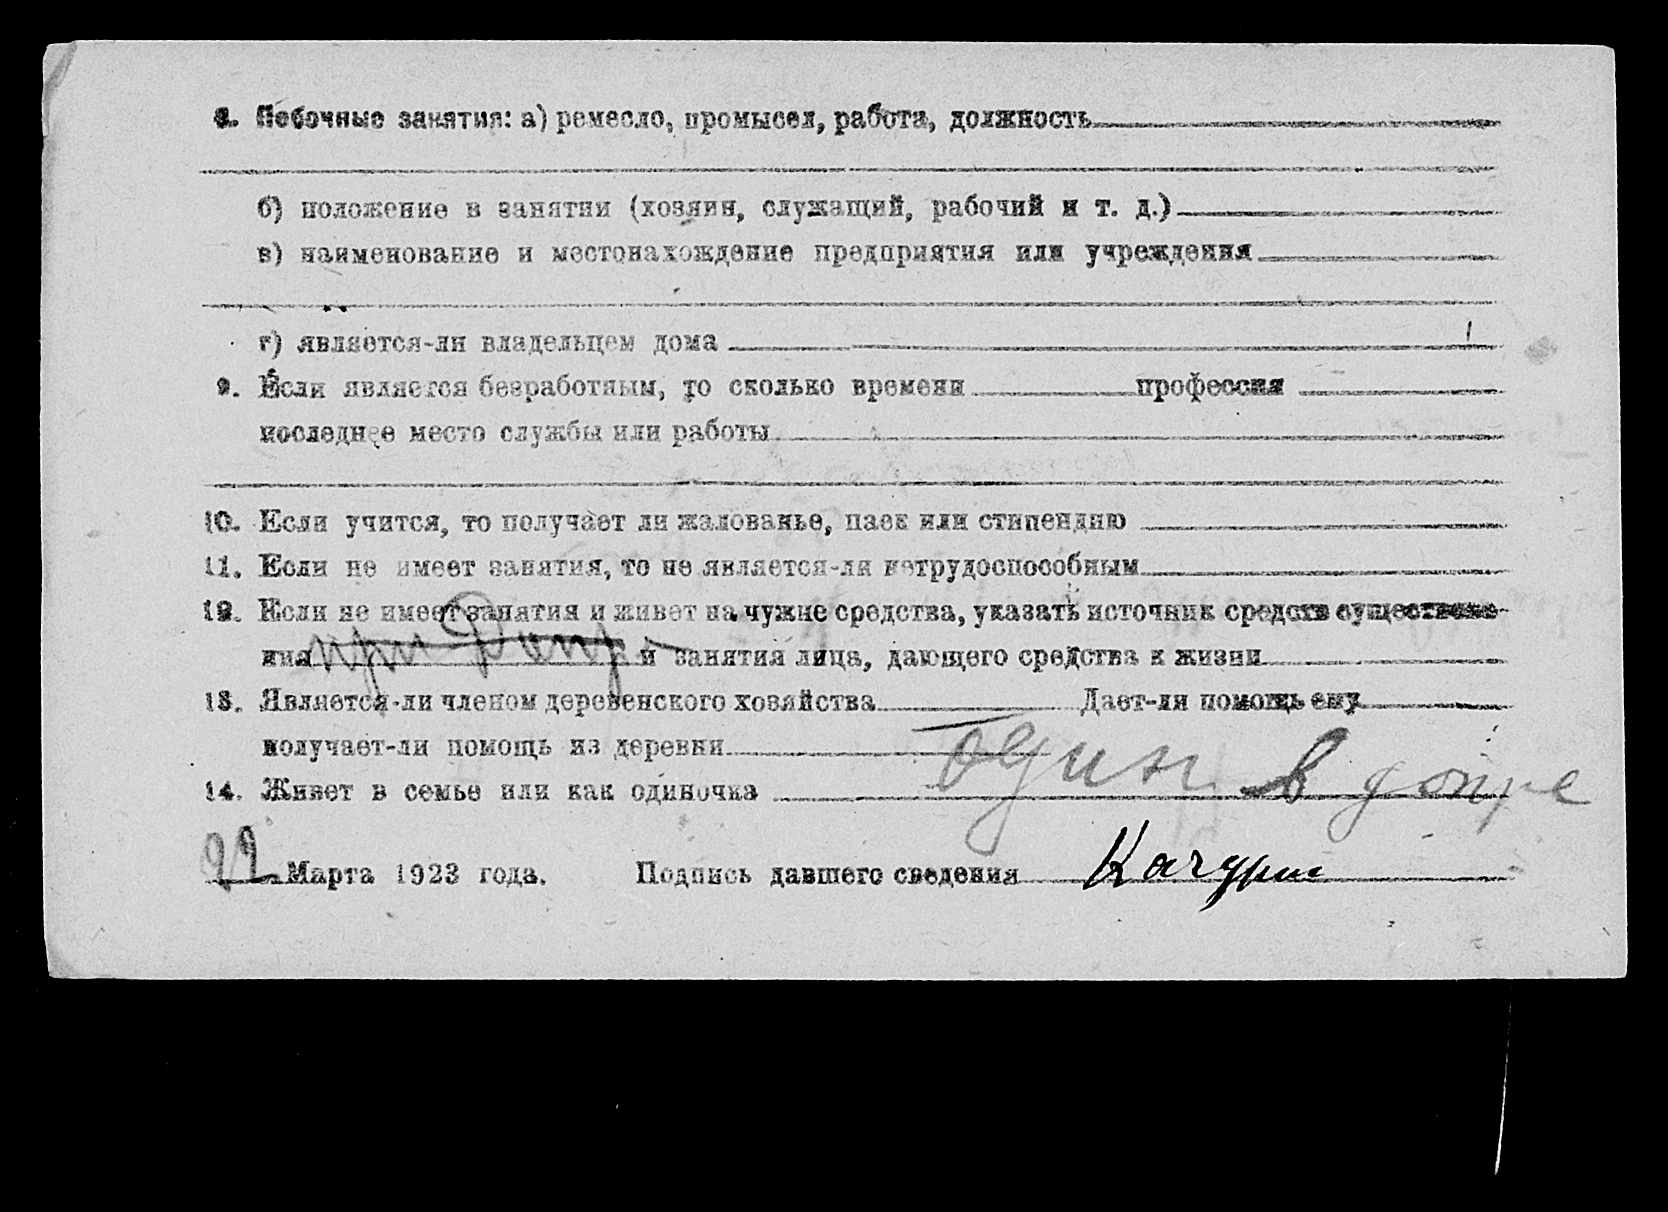 8. Побочные занятия: а) ремесло, промысел, работа, должность
б) положение в занятии (хозяин, служащий, рабочий и т. д.)
в) наименование и местонахождение предприятия или учреждения
г) является-ли владельцем дома
9. Если является безработным, то сколько времени профессия
последнее место службы или работы
10. Если учится, то получает ли жалованье, паек или стипендию
11. Если не имеет занятия, то не является-ли нетрудоспособным
12. Если не имеет занятия и живет на чужие средства, указать источник средств существова-
ния при и занятия лица, дающего средства к жизни
13. Является-ли членом деревенского хозяйства Дает-ли помощь ему
получает-ли помощь из деревни
14. Живет в семье или как одиночка один в допре
22 Марта 1923 года. Подпись давшего сведения